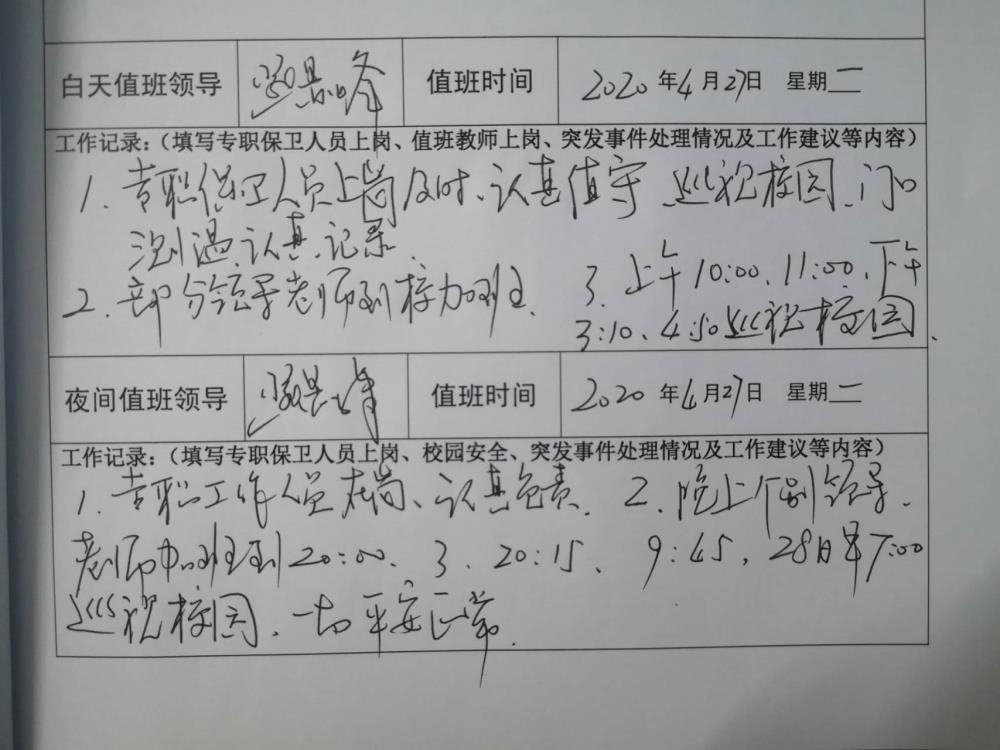 白天值班领导 值班时间 2020年4月27日 星期二
工作记录:(填写专职保卫人员上岗、值班教师上岗、突发事件处理情况及工作建议等内容)
1. 专职保卫人员上岗及时、认真值守、巡视校园、门口
测温、认真记录.
2. 部分领导老师到校加班. 3. 上午10:00、11:00、下午
3:10、4:50巡视校园.
夜间值班领导 值班时间 2020年4月27日 星期二
工作记录:(填写专职保卫人员上岗、校园安全、突发事件处理情况及工作建议等内容)
1. 专职工作人员在岗、认真负责. 2. 晚上个别领导、
老师加班到20:00. 3. 20:15、9:45,28日早7:00
巡视校园、一切平安正常.